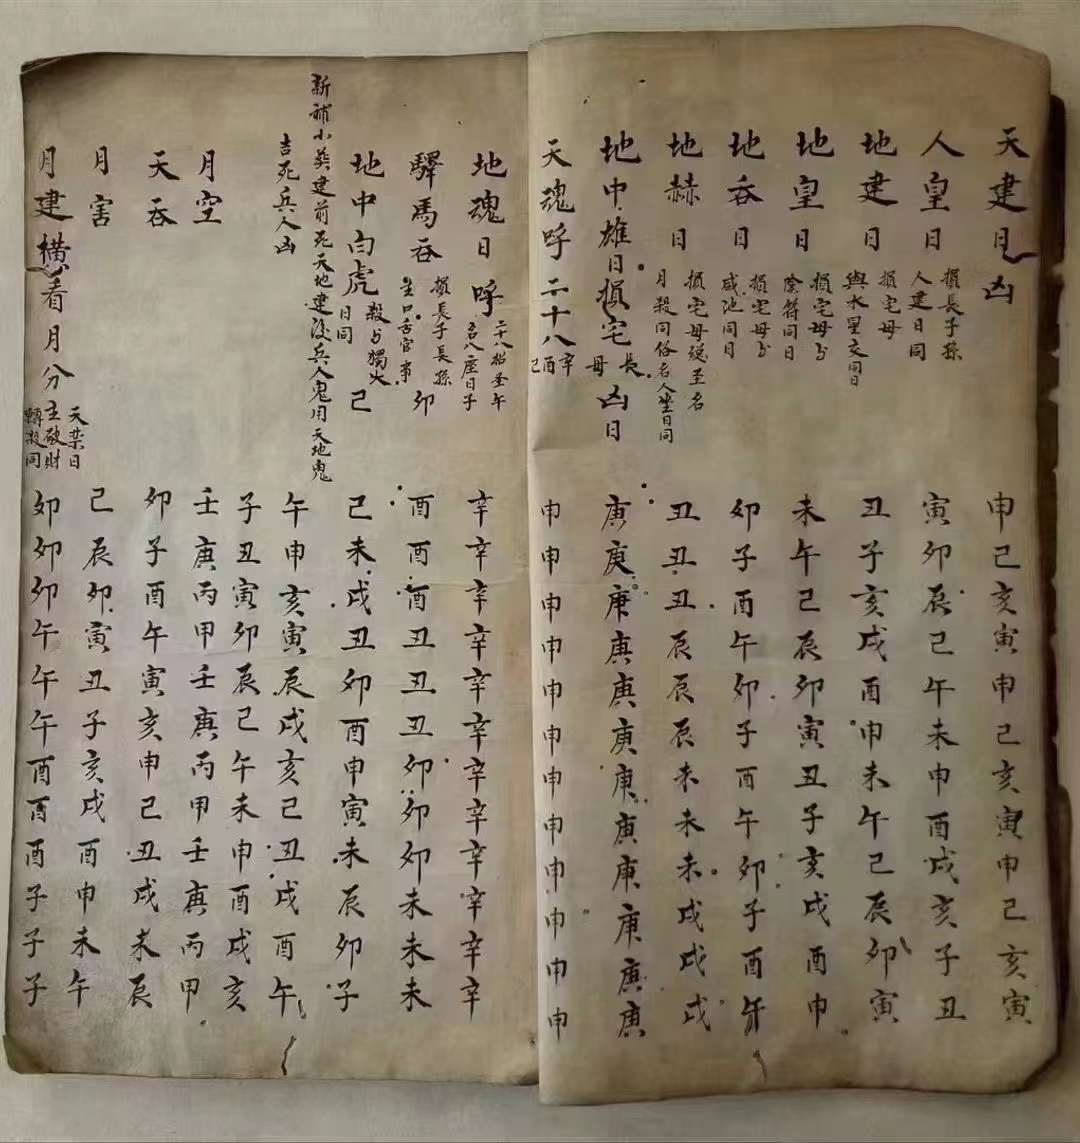 天建日凶 申己亥寅申己亥寅申己亥寅
人皇日 損長子孫 人建日同 寅卯辰己午未申酉戌亥子丑
地建日 損宅母 與水星交同日 丑子亥戌酉申未午己辰卯寅
地皇日 損宅母与 陰符同日 未午己辰卯寅丑子亥戌酉申
地吞日 損宅母与 咸池同日 卯子酉午卯子酉午卯子酉午
地赫日 損宅母 至名 月殺同俗名人坐日同 丑丑丑辰辰辰未未未戌戌戌
地中雄日損宅長母凶日 庚庚庚庚庚庚庚庚庚庚庚庚
天魂呼二十八 辛酉己 申申申申申申申申申申申申
地魂日呼 二十八 午 八座日子 辛辛辛辛辛辛辛辛辛辛辛辛
驛馬吞 損長子長孫 生口舌官事 卯 酉酉酉丑丑丑卯卯卯未未未
地中白虎 殺与獨火 日同 己 己未戌丑卯酉申寅未辰卯子
新補小葬建前死天地建後兵人鬼用天地鬼
吉死兵人凶 午申亥寅辰戌亥己丑戌酉午
子丑寅卯辰己午未申酉戌亥
月空 壬庚丙甲壬庚丙甲壬庚丙甲
天吞 卯子酉午寅亥申己丑戌未辰
月害 己辰卯寅丑子亥戌酉申未午
月建橫看月分 天禁日 主破財 轉殺同 卯卯卯午午午酉酉酉子子子